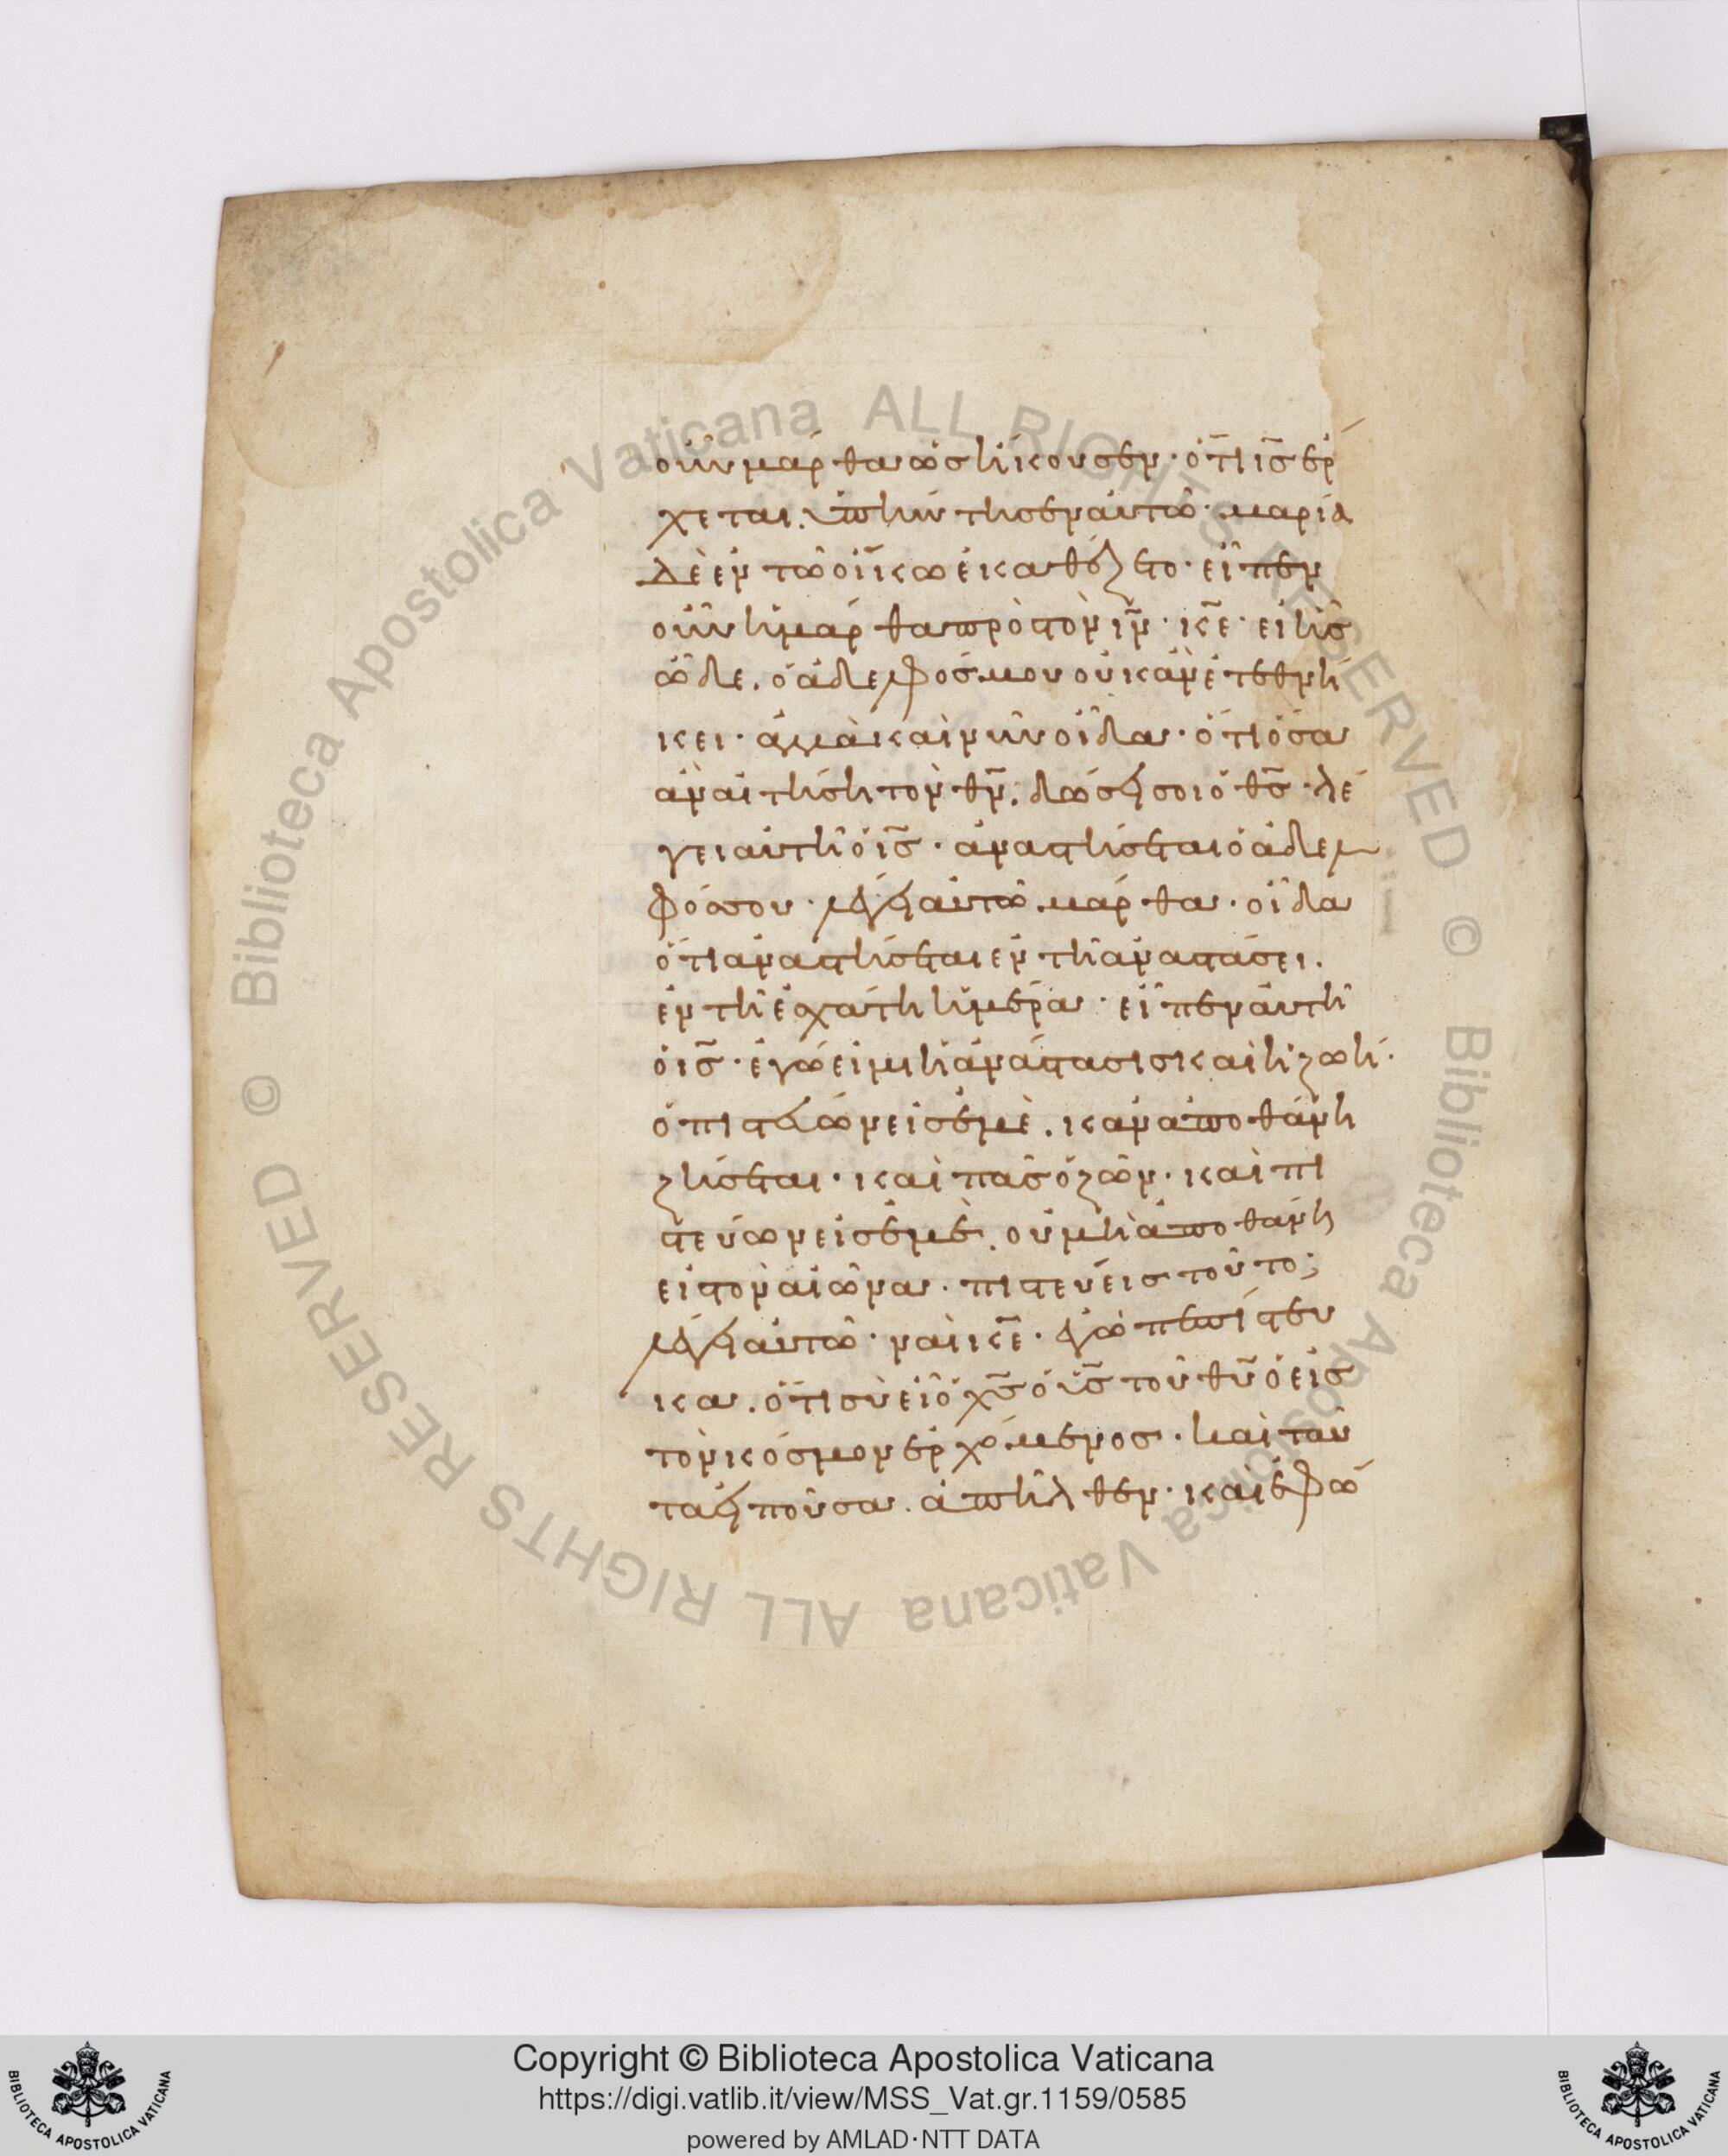 οὖν μάρθα ὡς ἤκουσεν· ὅτι ις̅ ἔρ
χεται. ὑπήντησεν αὐτῶ· μαρία
δὲ ἐν τῶ οἴκω ἐκαθέζετο· εἶπεν
οὖν ἡ μάρθα πρὸς τὸν ιν̅· κε̅· εἰ ἦς
ὧδε. ὁ ἀδελφός μου οὐκ ἂν ἐτεθνή
κει· ἀλλὰ καὶ νῦν οἶδα· ὅτι ὅσα
ἂν αἰτήση τὸν θν̅. δώσει σοι ὁ θς̅· λέ
γει αὐτῆ ὁ ις̅· ἀναστήσεται ὁ ἀδελ
φός σου· λέγει αὐτῶ μάρθα· οἶδα
ὅτι ἀναστήσεται ἐν τῆ ἀναστάσει.
ἐν τῆ ἐσχάτη ἡμέρα· εἶπεν αὐτῆ
ὁ ις̅· ἐγώ εἰμι ἡ ἀνάστασις καὶ ἡ ζωή·
ὁ πιστεύων εἰς ἐμὲ. κἂν ἀποθάνη
ζήσεται· καὶ πᾶς ὁ ζῶν· καὶ πι
στεύων εἰς ἐμὲ. οὐ μὴ ἀποθάνη
εἰς τὸν αἰῶνα· πιστεύεις τοῦτο;
λέγει αὐτῶ· ναὶ κε̅· ἐγὼ πεπίστευ
κα. ὅτι σὺ εἶ ὁ χς̅ ὁ υς̅ τοῦ θυ̅ ὁ εἰς
τὸν κόσμον ἐρχόμενος· καὶ ταῦ
τα εἰποῦσα. ἀπῆλθεν· καὶ ἐφώ
Copyright © Biblioteca Apostolica Vaticana
https://digi.vatlib.it/view/MSS_Vat.gr.1159/0585
powered by AMLAD·NTT DATA
BIBLIOTECA APOSTOLICA VATICANA
BIBLIOTECA APOSTOLICA VATICANA
© Biblioteca Apostolica Vaticana ALL RIGHTS RESERVED
© Biblioteca Apostolica Vaticana ALL RIGHTS RESERVED